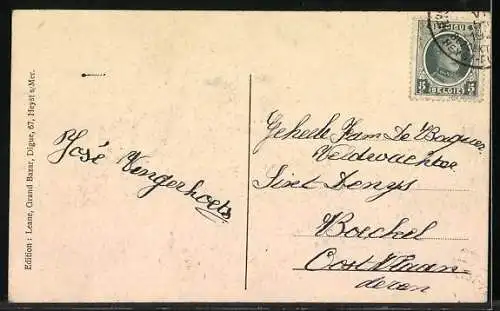 Edition : Leane, Grand Bazar, Digue, 67, Heyst s/Mer.
José Vengerhoets
BELGIQUE
5 BELGIE 5
Geheele Fam De Bogaer
Veldwachter
Sint Denijs
Boechel
Oost Vlaan-
deren